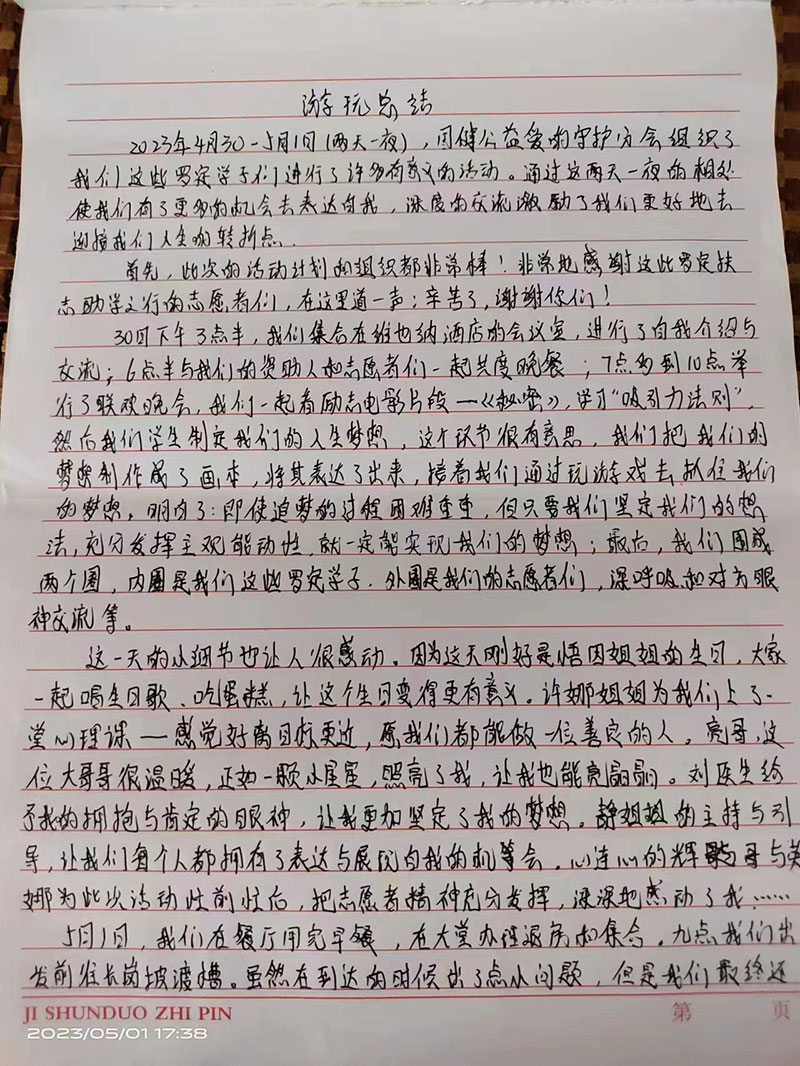 游玩总结
2023年4月30-5月1日(两天一夜),因健公益爱的守护访会组织了
我们这些罗定学子们进行了许多有意义的活动。通过这两天一夜的相处
使我们有了更多的机会去表达自我,深度的交流激励了我们更好地去
迎接我们人生的转折点.
首先,此次的活动计划和组织都非常棒!非常地感谢这些罗定扶
志助学之行的志愿者们,在这里道一声:辛苦了,谢谢你们!
30日下午3点半,我们集合在维也纳酒店的会议室,进行了自我介绍与
交流;6点半与我们的资助人和志愿者们一起共度晚餐;7点多到10点举
行了联欢晚会,我们一起看励志电影片段一《秘密》,学习“吸引力法则”,
然后我们学生制定我们的人生梦想,这个环节很有意思,我们把我们的
梦想制作成了画本,将其表达了出来,接着我们通过玩游戏去抓住我们
的梦想,明白了:即使追梦的过程困难重重,但只要我们坚定我们的想
法,充分发挥主观能动性,就一定能实现我们的梦想;最后,我们围成
两个圈,内圈是我们这些罗定学子.外圈是我们的志愿者们,深呼吸和对方眼
神交流等。
这一天的小细节也让人很感动。因为这天刚好是悟因姐姐的生日,大家
一起唱生日歌、吃蛋糕,让这个生日变得更有意义。许娜姐姐为我们上了一
堂心理课——感觉好离目标更近,愿我们都能做一位善良的人。亮哥,这
位大哥哥很温暖,正如一颗小星星,照亮了我,让我也能亮晶晶。刘医生给
予我的拥抱与肯定的眼神,让我更加坚定了我的梦想。静姐姐的主持与引
导,让我们每个人都拥有了表达与展现自我的机会。心连心的辉哥与英
娜为此次活动忙前忙后,把志愿者精神充分发挥,深深地感动了我……
5月1日,我们在餐厅用完早餐,在大堂办理退房和集合。九点我们出
发前往长岗坡渡槽。虽然在到达的时候出了点小问题,但是我们最终还
JI SHUNDUO ZHI PIN 第 页
2023/05/01 17:38